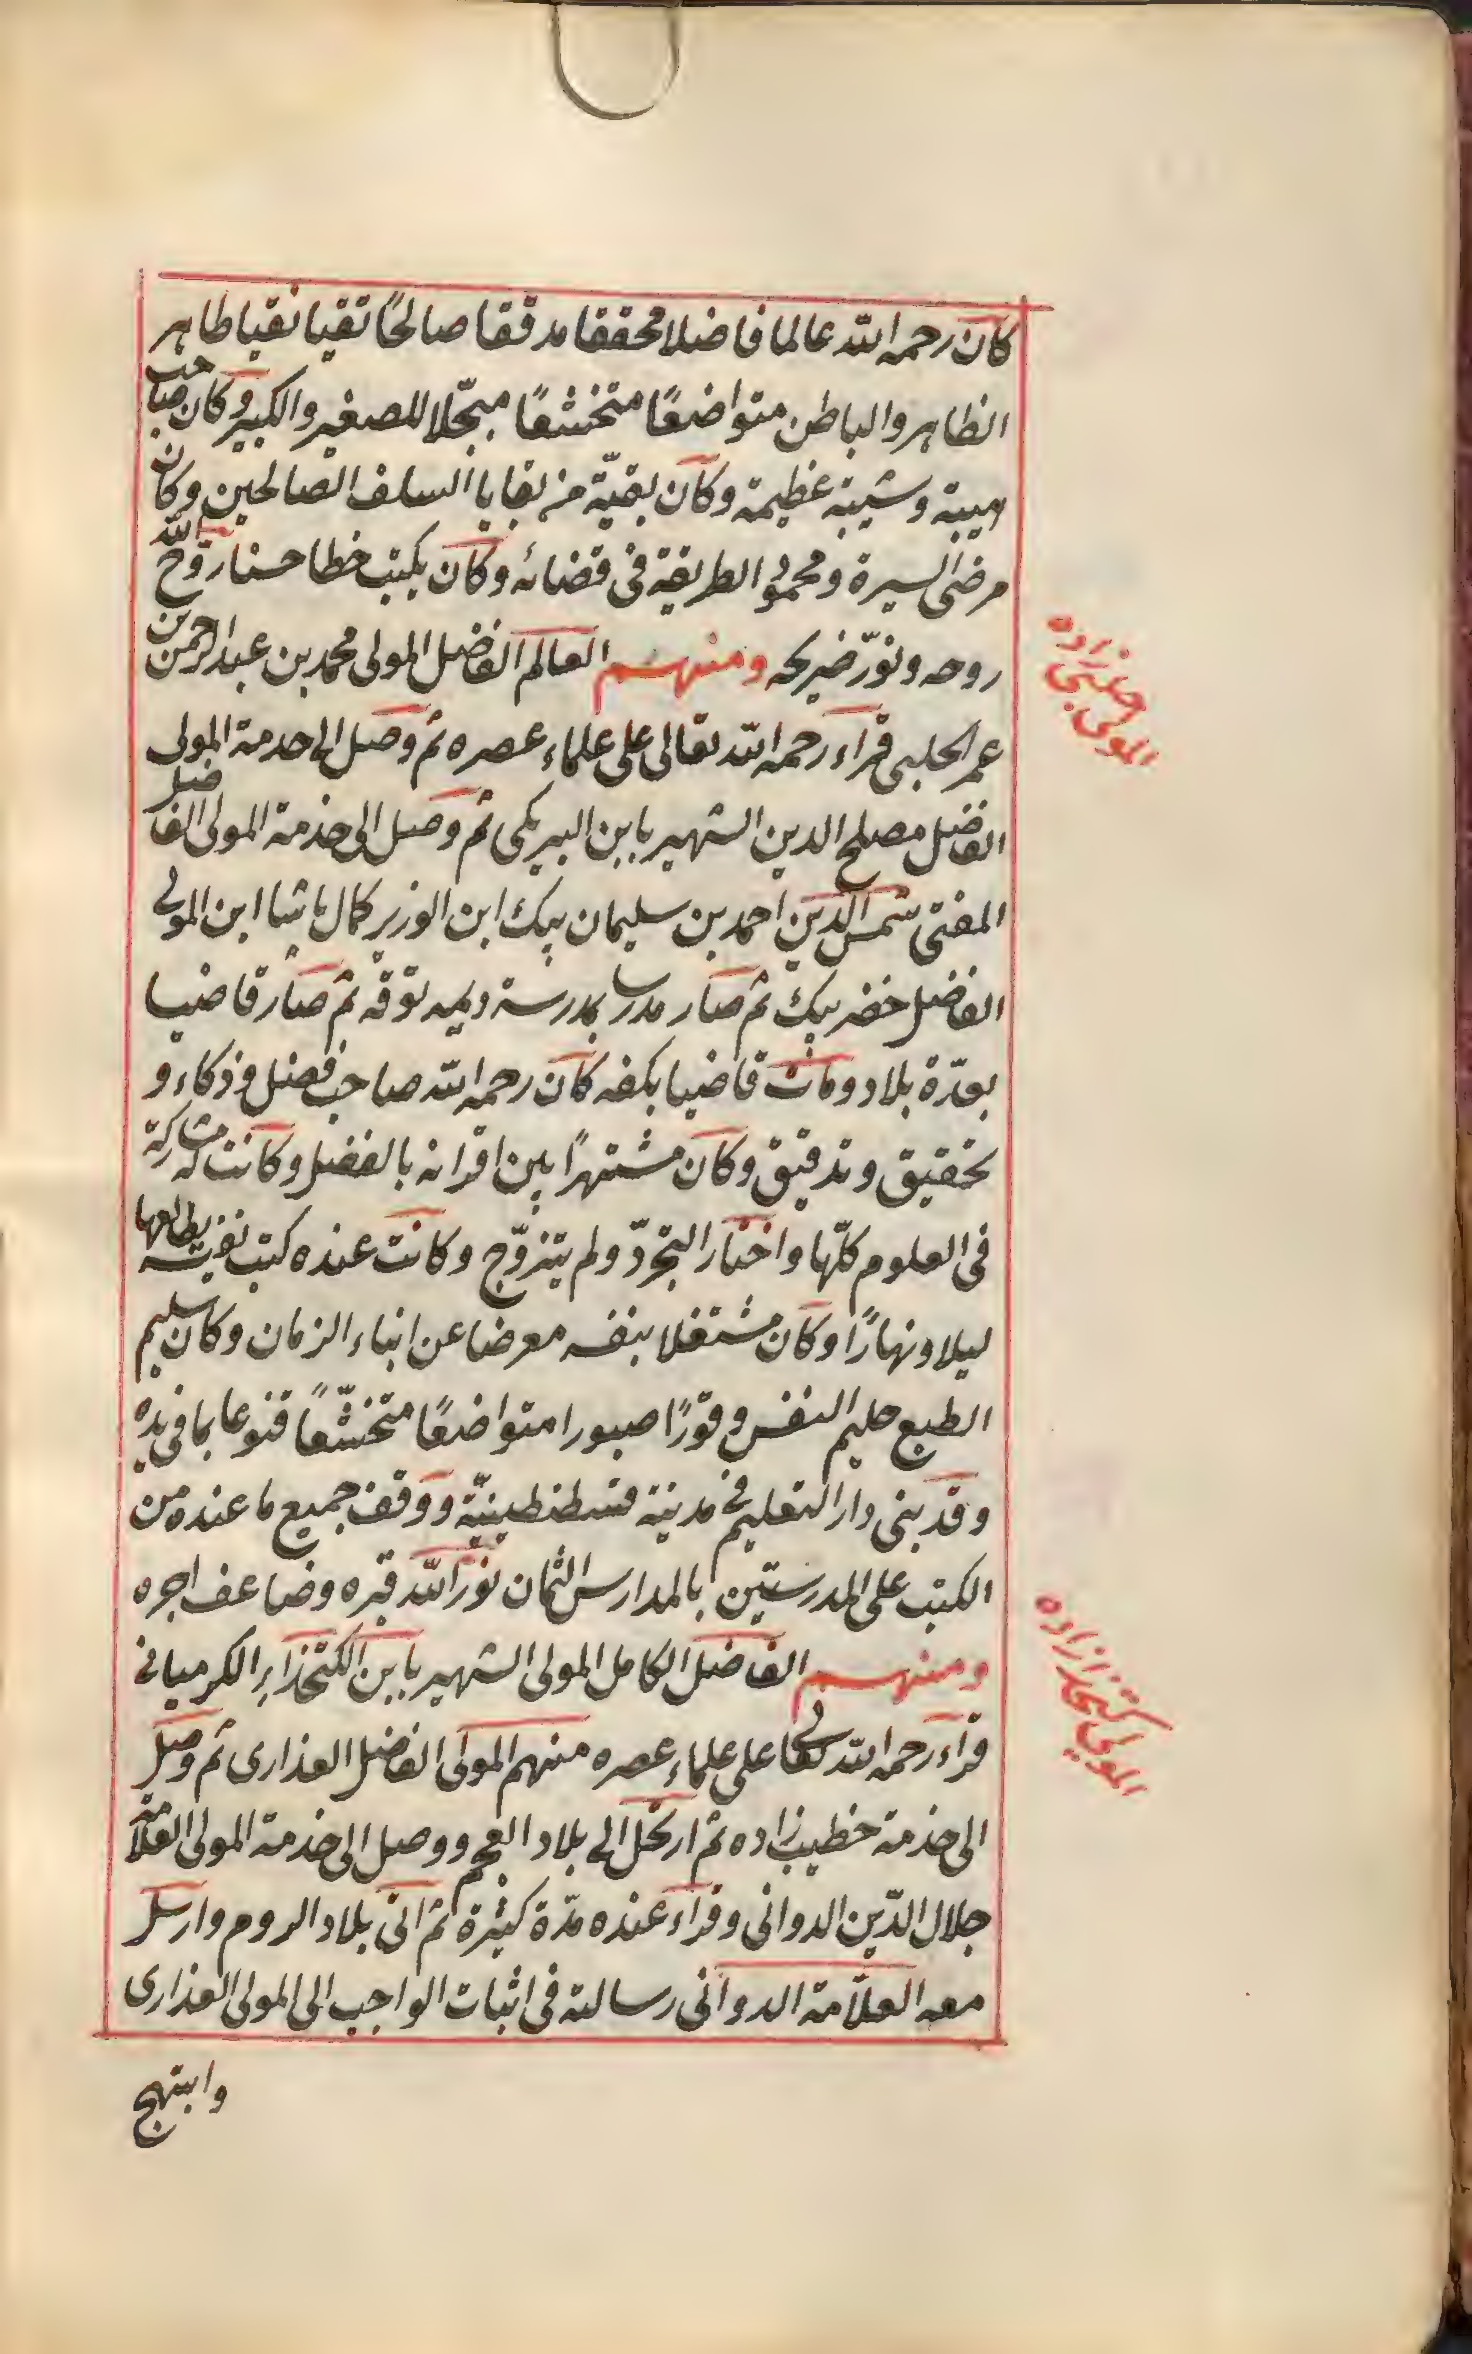 كان رحمه الله عالما فاضلا محققا مدققا صالحًا تقيا نقيا طاهر
الظاهر والباطن متواضعًا متخشعًا مبجّلا للصغير والكبير وكان صاحب
هيبة وشيبة عظيمة وكان بقيّة من بقايا السلف الصالحين وكان
مرضى السيرة ومحمود الطريقة فى قضائه وكان يكتب خطا حسنا روّح الله
روحه ونوّر ضريحه ومنهم العالم الفاضل المولى محمد بن عبد الرحمن بن
عمر الحلبى قراء رحمه الله تعالى على علماء عصره ثم وصل الى خدمة المولى
الفاضل مصلح الدين الشهير بابن البيركى ثم وصل الى خدمة المولى الفاضل
المفتى شمس الدين احمد بن سليمان بيك ابن الوزير كمال باشا ابن المولى
الفاضل خضر بيك ثم صار مدرسا بمدرسة ديمه توقه ثم صار قاضيا
بعدّة بلاد ومات قاضيا بكفه كان رحمه الله صاحب فضل وذكاء و
تحقيق وتدقيق وكان مشتهرًا بين اقرانه بالفضل وكانت له مشاركة
فى العلوم كلّها واختار التجرّد ولم يتزوّج وكانت عنده كتب نفيسة يطالعها
ليلا ونهارًا وكان مشتغلا بنفسه معرضا عن ابناء الزمان وكان سليم
الطبع حليم النفس وقورًا صبورا متواضعًا متخشّعًا قنوعا بما فى يده
وقد بنى دار التعليم فى مدينة قسطنطينيّة ووقف جميع ما عنده من
الكتب على المدرستين بالمدارس الثمان نوّر الله قبره وضاعف اجره
ومنهم الفاضل الكامل المولى الشهير بابن الكتخذا الكرميانى
قراء رحمه الله تعالى على علماء عصره منهم المولى الفاضل العذارى ثم وصل
الى خدمة خطيب زاده ثم ارتحل الى بلاد العجم ووصل الى خدمة المولى العلّامة
جلال الدّين الدوانى وقراء عنده مدّة كثيرة ثم اتى بلاد الروم وارسل
معه العلّامة الدوانى رسالته فى اثبات الواجب الى المولى العذارى
وابتهج
المولى حلبى زاده
المولى كتخدا زاده